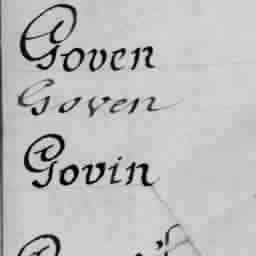 Goven
Goven
Govin